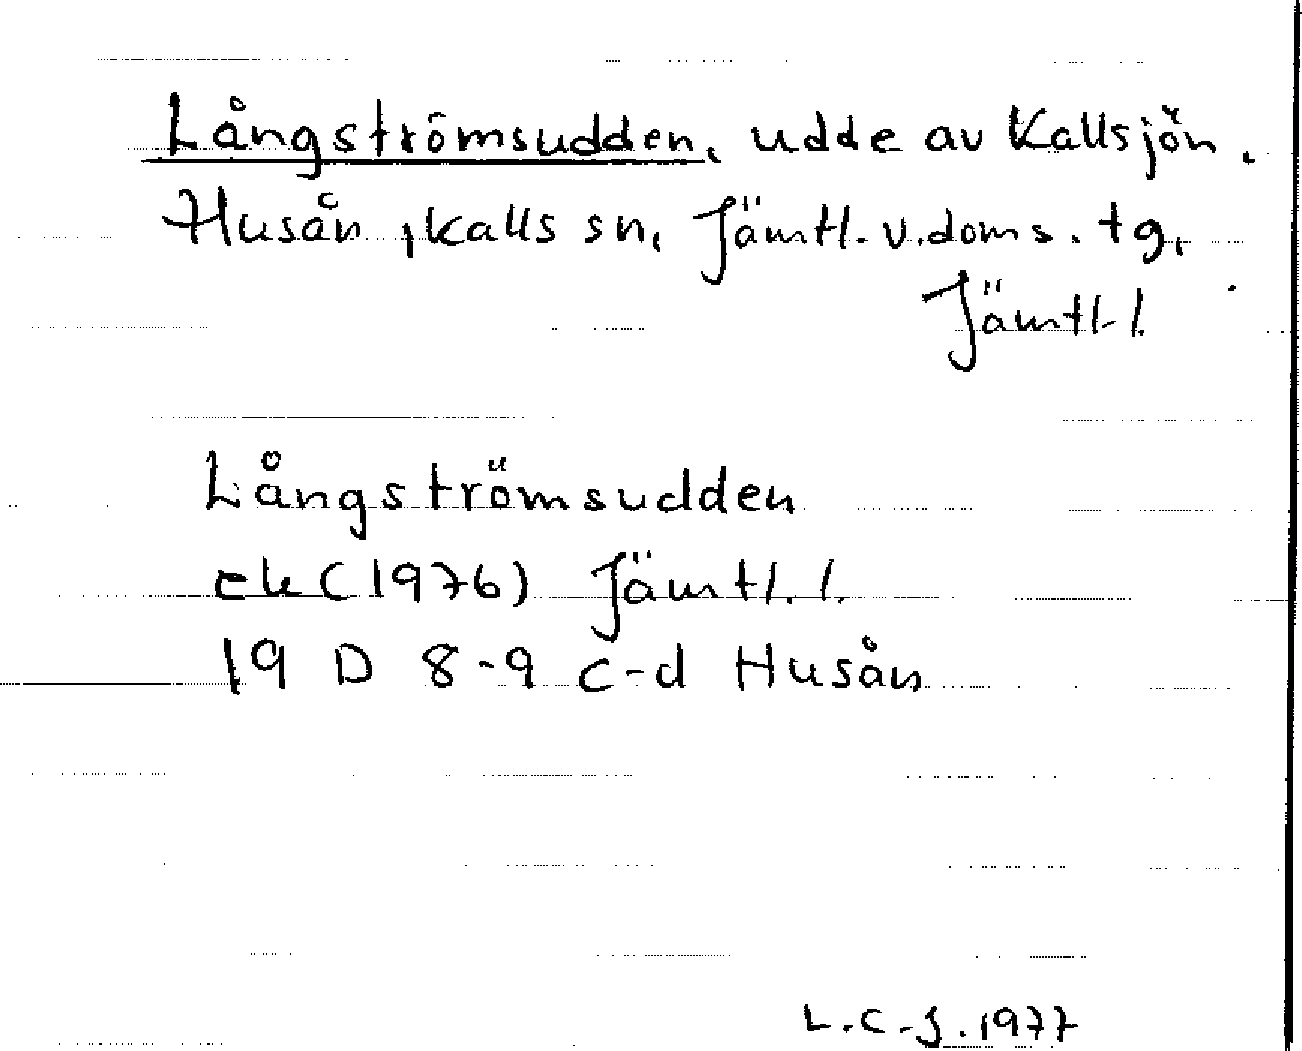 Långströmsudden, udde av Kallsjön,
Husån, Kalls sn, Jämtl. v. doms. tg,
Jämtl. l.
Långströmsudden
ek (1976) Jämtl. l.
19 D 8-9 c-d Husån
L.C-J. 1977